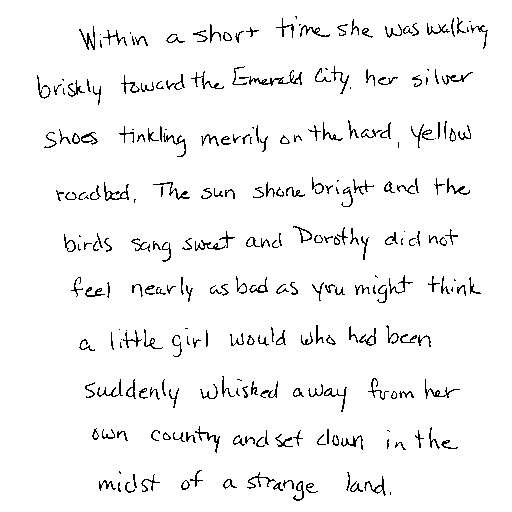 Within a short time she was walking
briskly toward the Emerald City, her silver
Shoes tinkling merrily on the hard, yellow
roadbed. The sun shone bright and the
birds sang sweet and Dorothy did not
feel nearly as bad as you might think
a little girl would who had been
suddenly whisked away from her
own country and set down in the
midst of a strange land.